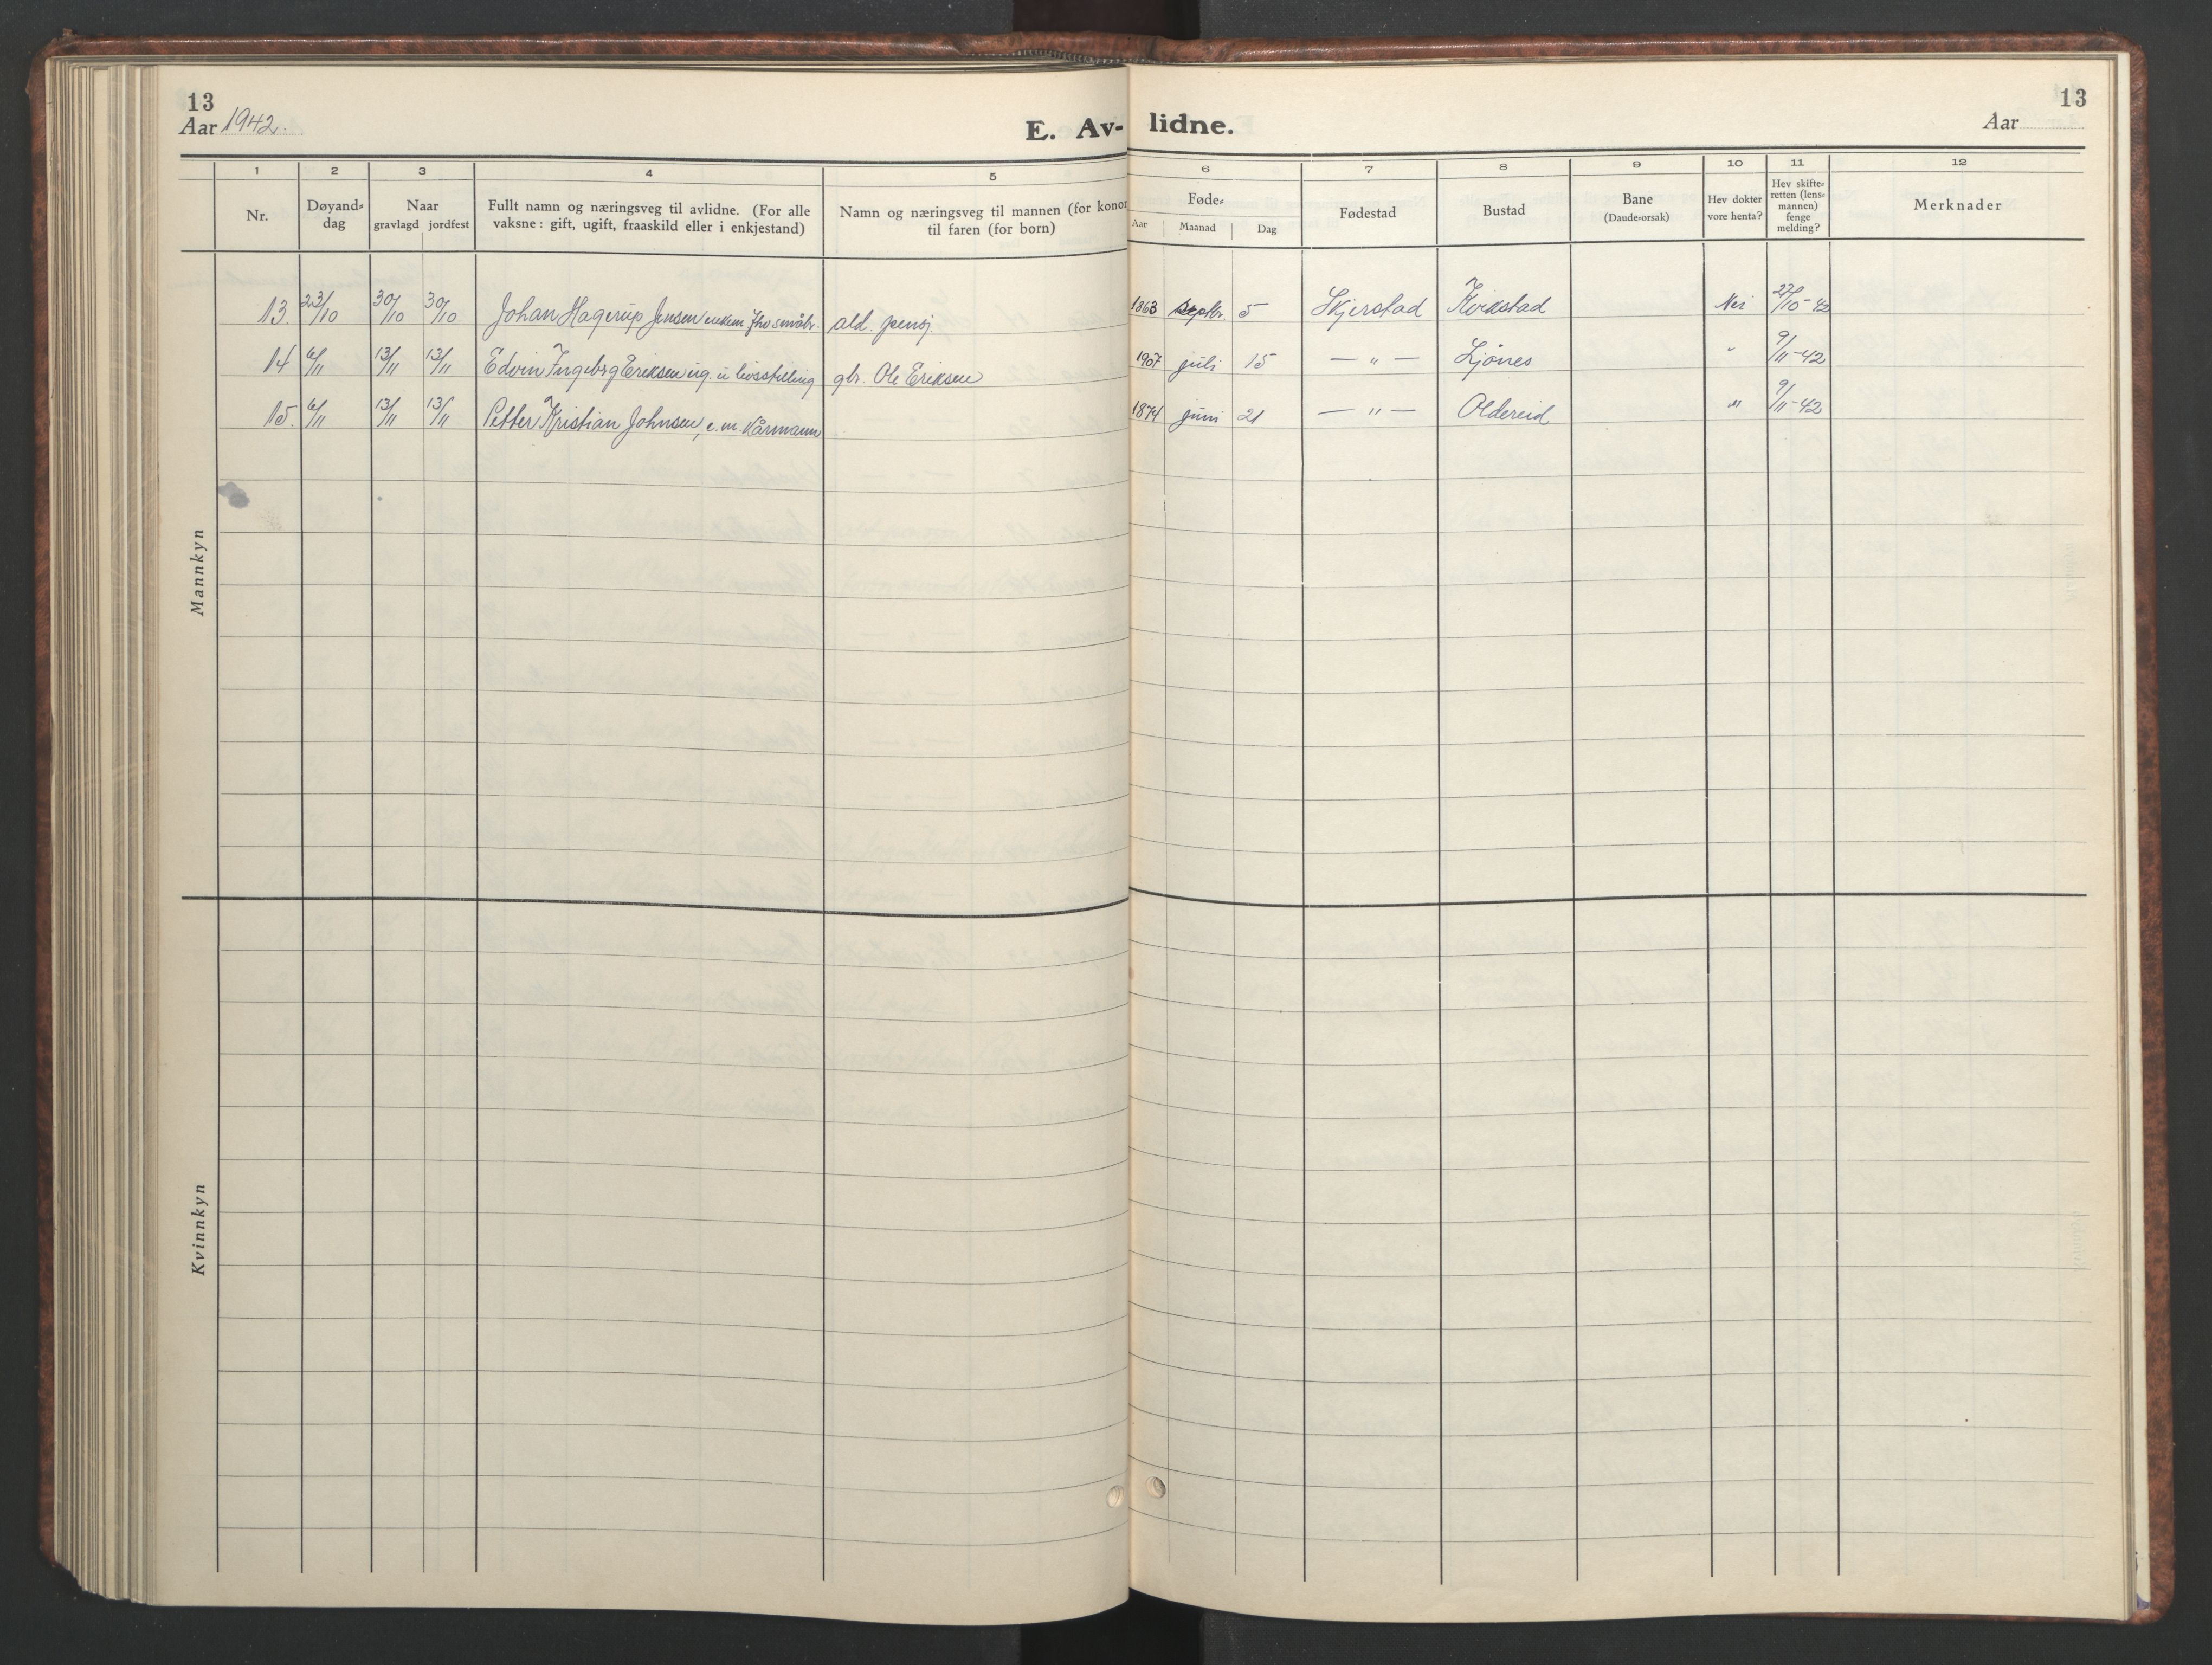 13
Aar 1942.
E. Av-
lidne.
13
Aar
1 2 3 4 5 6 7 8 9 10 11 12
Nr.
Døyand-
dag
Naar
gravlagd jordfest
Fullt namn og næringsveg til avlidne. (For alle
vaksne: gift, ugift, fraaskild eller i enkjestand)
Namn og næringsveg til mannen (for konor
til faren (for born)
Føde-
Aar Maanad Dag
Fødestad
Bustad
Bane
(Daude-orsak)
Hev dokter
vore henta?
Hev skifte-
retten (lens-
mannen)
fenge
melding?
Merknader
Mannkyn
13. 23/10 30/10 30/10 Johan Hagerup Jensen småbr. ald. pensj. 1863 septbr. 5 Skjerstad Kvikstad Nei 27/10-42
14 6/11 13/11 13/11 Edvin Ingebrg Eriksen ug. u livsstilling gbr. Ole Eriksen 1907 juli 15 — " — Ljønes " 9/11-42
15. 6/11 13/11 13/11 Petter Kristian Johnsen, e.m. kårmann 1874 juni 21 — " — Oldereid " 9/11-42
Kvinnkyn